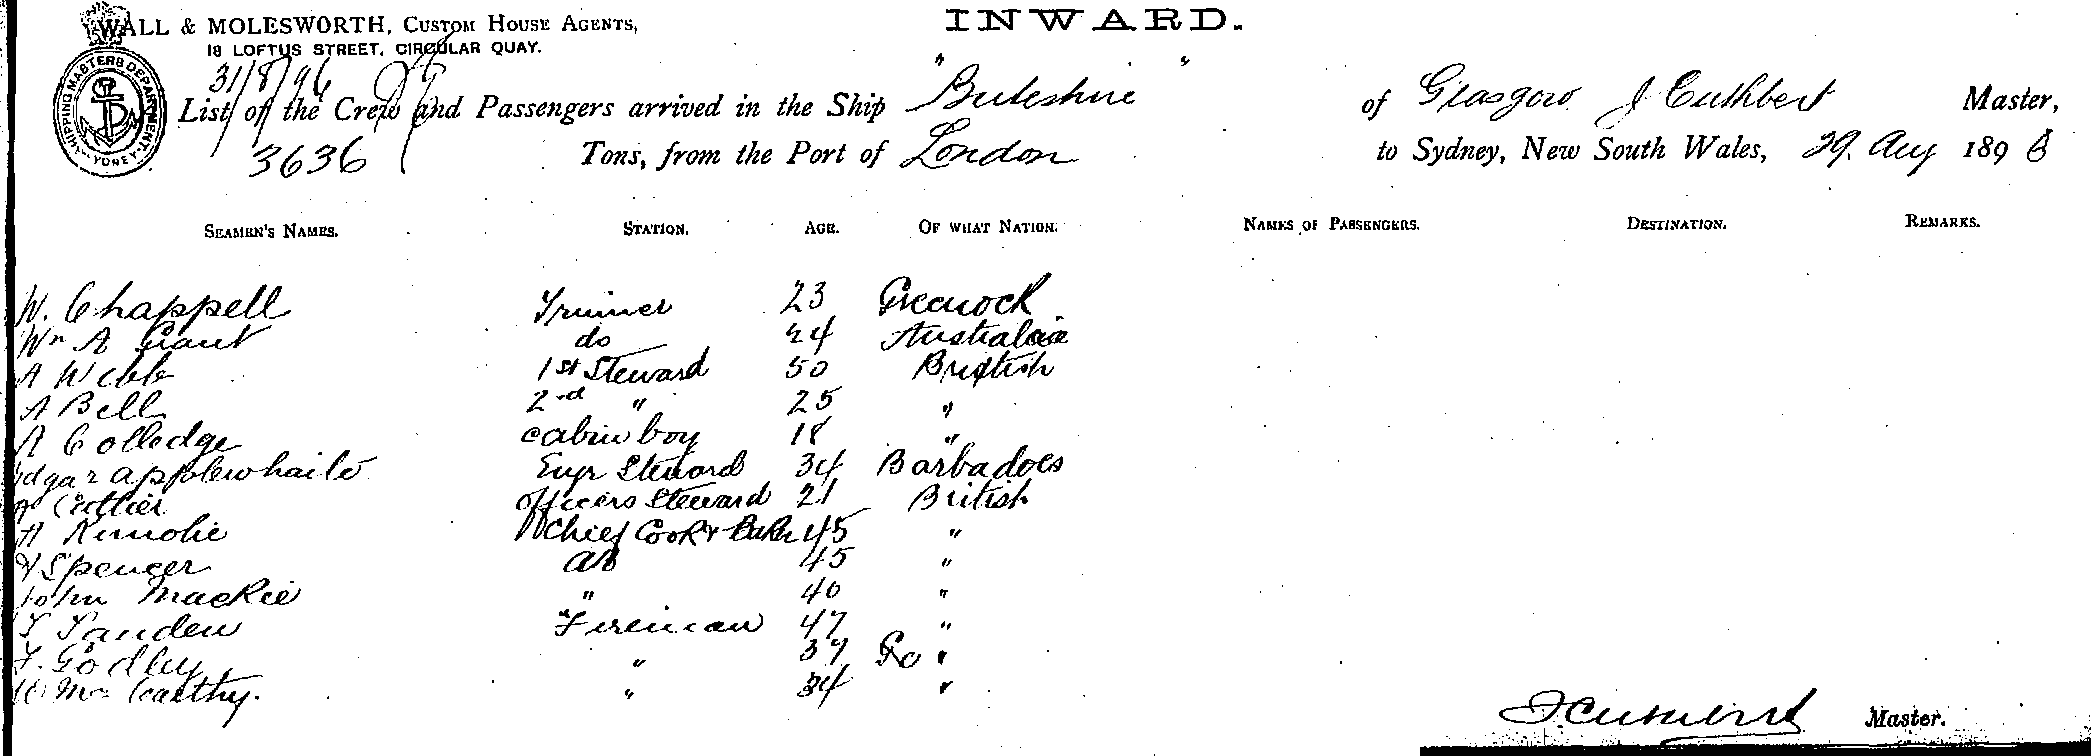 WALL & MOLESWORTH, CUSTOM HOUSE AGENTS,
18 LOFTUS STREET, CIRCULAR QUAY.
INWARD.
SHIPPING MASTERS DEPARTMENT SYDNEY
31/8/96
List of the Crew and Passengers arrived in the Ship "Buteshire" of Glasgow J Cuthbert Master,
3636 Tons, from the Port of London to Sydney, New South Wales, 29. Aug 1896
SEAMEN'S NAMES. STATION. AGE. OF WHAT NATION. NAMES OF PASSENGERS. DESTINATION. REMARKS.
W. Chappell Trimmer 23 Greenock
Wm A Grant do 24 Australaia
A Webb 1st Steward 50 British
A Bell 2nd " 25 "
A Colledge cabin boy 18 "
Edgar Applewhaite Engr Steward 34 Barbadoes
Collier officers Steward 21 British
A Chief Cook & Baker 45 "
Spencer AB 45 "
John Mackie " 40 "
T Fireman 47 "
F. Godley " 39 "
McCarthy. " 34 "
J Cuthbert Master.